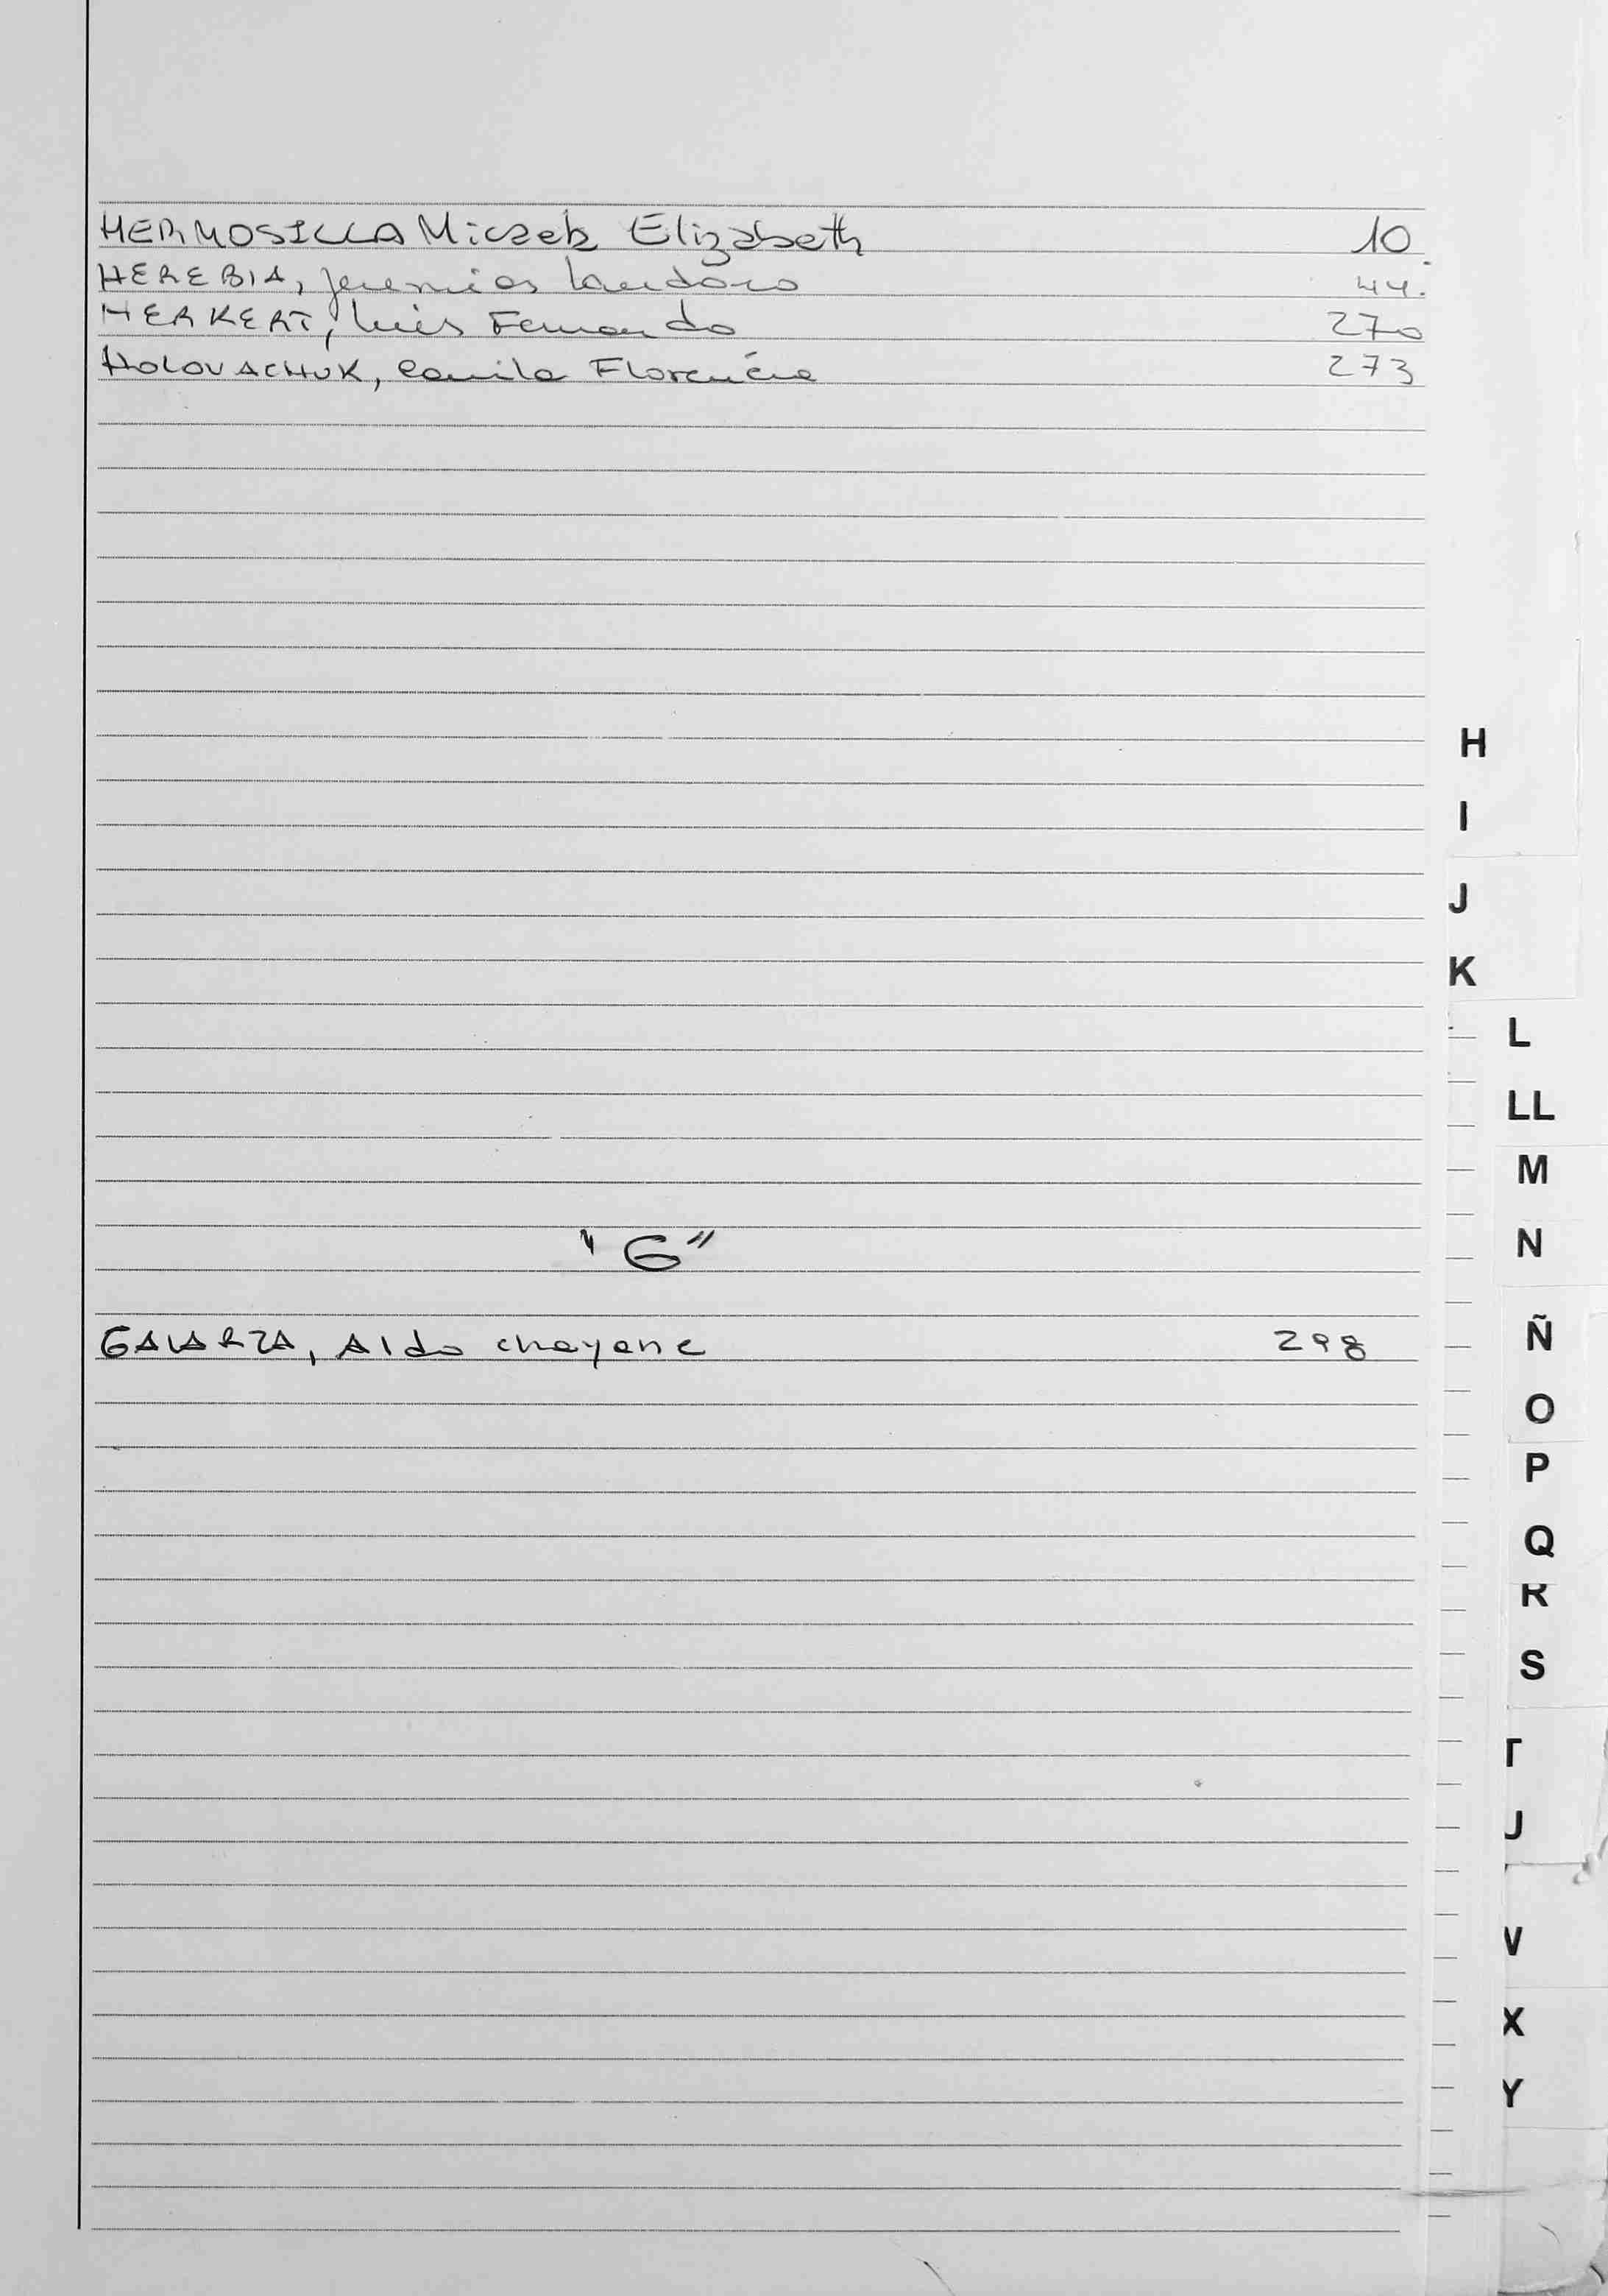 HERMOSILLA Miczek Elizabeth 10
HEREBIA, Jeremias 44.
HERKERT, Luis Fernando 270
HOLOVACHUK, Camila Florencia 273
H
I
J
K
L
LL
M
N
"G"
Ñ
GALARZA, Aldo chayane 298
O
P
Q
R
S
T
U
V
X
Y